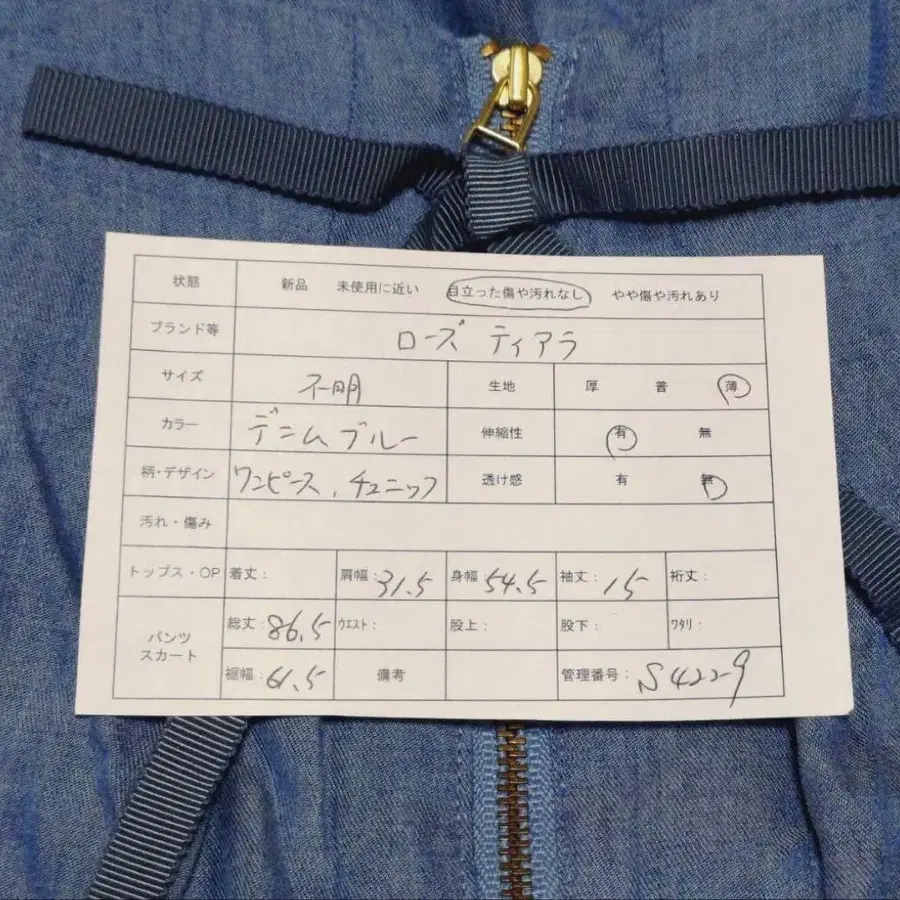 状態 新品 未使用に近い 目立った傷や汚れなし やや傷や汚れあり
ブランド等 ローズ ティアラ
サイズ 不明 生地 厚 普 薄
カラー デニムブルー 伸縮性 有 無
柄・デザイン ワンピース、チュニック 透け感 有 無
汚れ・傷み
トップス・OP 着丈: 肩幅:31.5 身幅:54.5 袖丈:15 裄丈:
パンツ スカート 総丈:86.5 ウエスト: 股上: 股下: ワタリ:
裾幅:61.5 備考 管理番号:S422-9